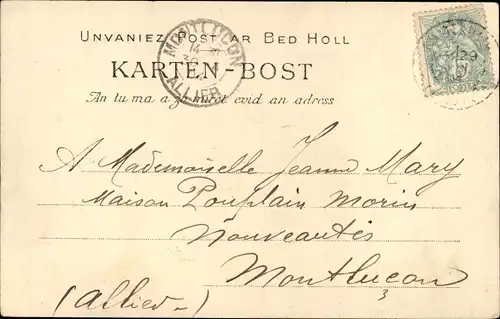 UNVANIEZ POST AR BED HOLL
MONTLUÇON
ALLIER
KARTEN-BOST
An tu ma a zo miret evid an adress
A Mademoiselle Jeanne Mary
Maison Pouplain Morin
Nouveautés
Montluçon
(Allier)